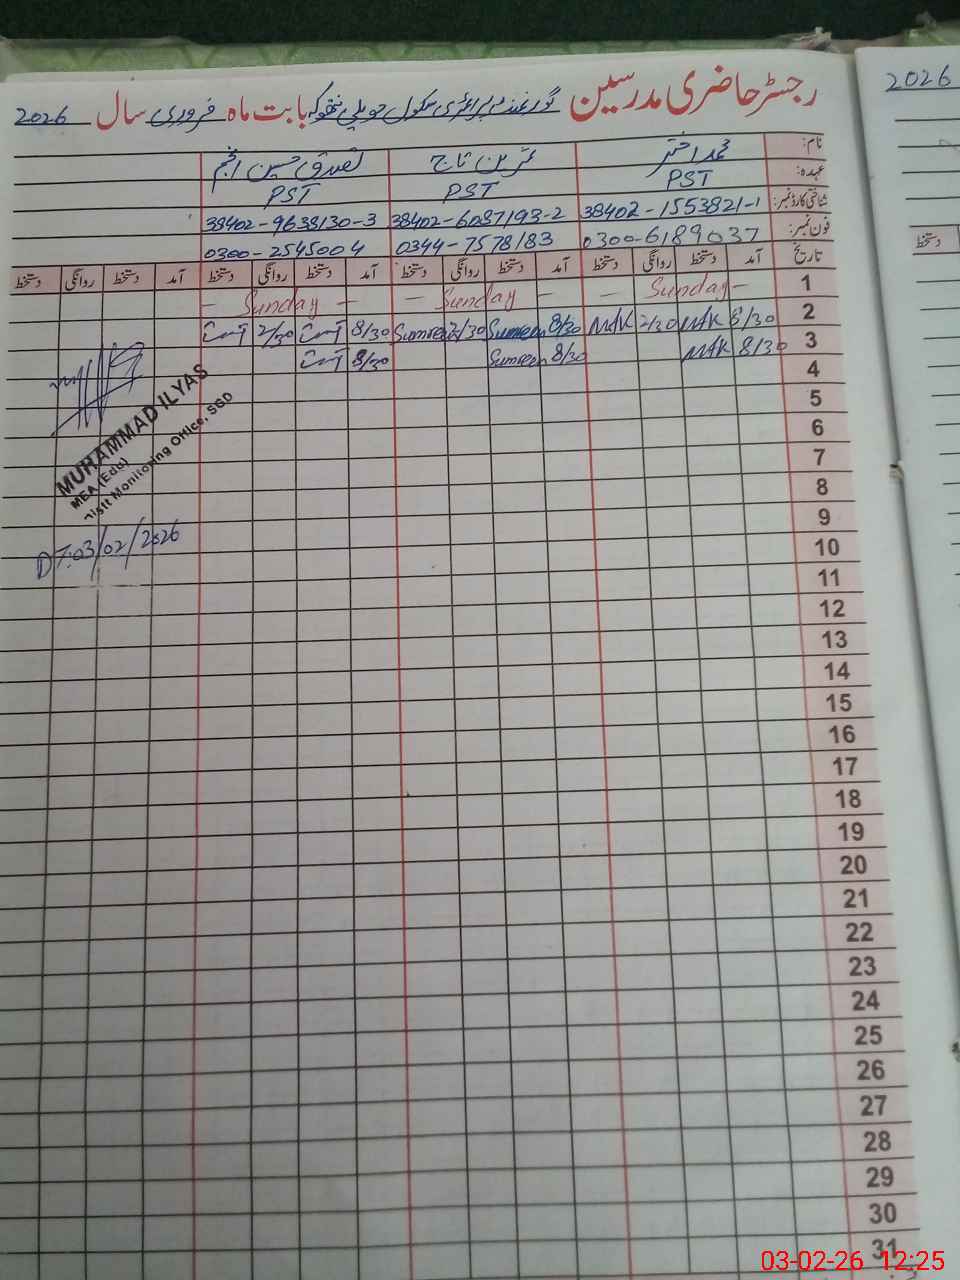 رجسٹر حاضری مدرسین گورنمنٹ پرائمری سکول حویلی بابت ماہ فروری سال 2026
2026
نام: محمد اختر تاج تصدق حسین انجم
عہدہ: PST PST PST
شناختی کارڈ نمبر: 38402-1553821-1 38402-6087193-2 38402-9638130-3
فون نمبر: 0300-6189037 0344-7578183 0300-2545004
تاریخ آمد دستخط روانگی دستخط آمد دستخط روانگی دستخط آمد دستخط روانگی دستخط آمد دستخط روانگی دستخط
دستخط
1 — Sunday — — Sunday — — Sunday —
2 8/30 MAK 2/30 MAK 8/30 Sumreen 2/30 Sumreen 8/30 2/30
3 8/30 MAK 8/30 Sumreen 8/30
4
5
6
7
8
9
10
11
12
13
14
15
16
17
18
19
20
21
22
23
24
25
26
27
28
29
30
31
MUHAMMAD ILYAS
MEA (Edu)
Monitoring Office, SGD
DT:03/02/2026
03-02-26 12:25